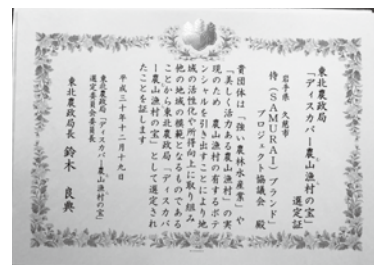 東北農政局
「ディスカバー農山漁村の宝」
選定証
岩手県 久慈市
侍（SAMURAI）ブランド
プロジェクト協議会 殿
貴団体は「強い農林水産業」や
「美しく活力ある農山漁村」の実
現のため 農山漁村の有するポテ
ンシャルを引き出すことにより地
域の活性化や所得向上に取り組み
他の地域の模範となるものである
ことから東北農政局「ディスカバ
ー農山漁村の宝」として選定され
たことを証します
平成三十年十二月十九日
東北農政局「ディスカバー農山漁村の宝」
選定委員会委員長
東北農政局長 鈴木 良典